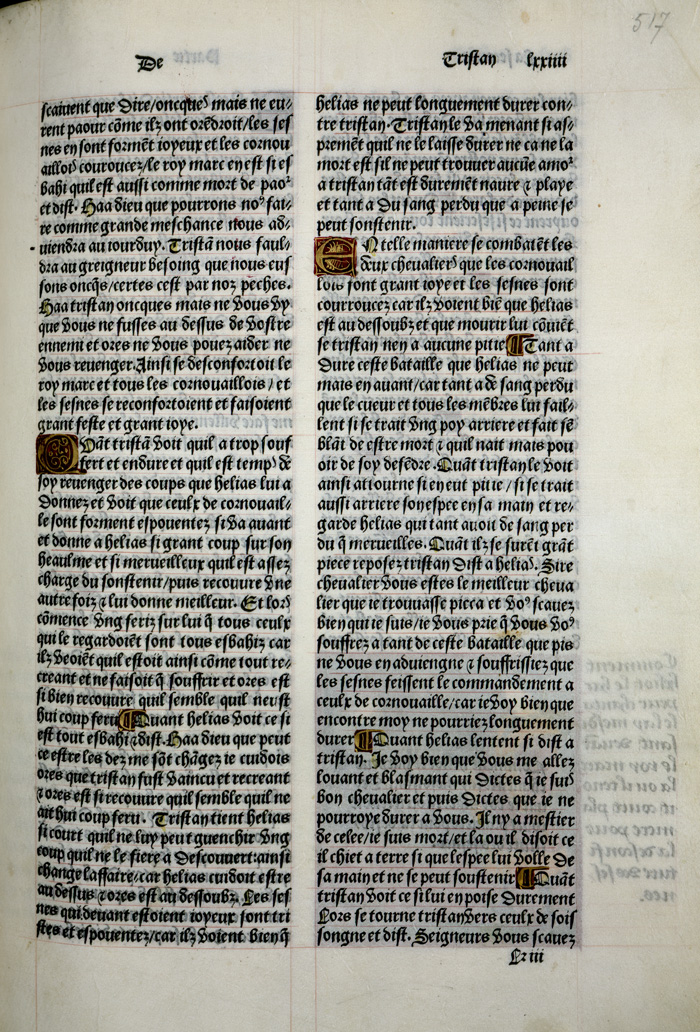 517
De
Tristan lxxiiii
scaiuent que dire/oncques mais ne eu⸗
rent paour cōme ilz ont orēdroit/les ses
nes en sont formēt ioyeux et les cornou
aillois courroucez/le roy marc en est si es
bahi quil est aussi comme mort de paoꝛ
et dist. Haa dieu que pourrons noꝰ fai⸗
re comme grande meschance nous ad⸗
uiendra au iourduy. Tristā nous faul⸗
dra au greigneur besoing que nous eus
sons oncq̄s/certes cest par noz pechez.
Haa tristan oncques mais ne vous vy
que vous ne fusses au dessus de vostre
ennemi et ores ne vous pouez aider ne
vous reuenger. Ainsi se desconfortoit le
roy marc et tous les cornouaillois/et
les sesnes se reconfortoient et faisoient
grant feste et grant ioye.
Quāt tristā voit quil a trop souf
fert et endure et quil est temps de
soy reuenger des coups que helias lui a
donnez et voit que ceulx de cornouail⸗
le sont forment espouentez si va auant
et donne a helias si grant coup sur son
heaulme et si merueilleux quil est assez
charge du sonstenir/puis recouure vne
autre foiz ⁊ lui donne meilleur. Et lors
cōmence vng feriz sur lui q̄ tous ceulx
qui le regardoiēt sont tous esbahiz car
ilz veoiēt quil estoit ainsi cōme tout re⸗
creant et ne faisoit q̄ souffrir et ores est
si bien recouure quil semble quil neust
hui coup feru ¶ Quant helias voit ce si
est tout esbahi ⁊ dist. Haa dieu que peut
ce estre les dez me sōt chāgez ie cuidois
ores que tristan fust vaincu et recreant
⁊ ores est si recouure quil semble quil ne
ait hui coup feru. Tristan tient helias
si court quil ne luy peut guenchir vng
coup quil ne le fiere a descouuert⸱ainsi
change laffaire⸱car helias cuidoit estre
au dessus ⁊ ores est au dessoubz. Les ses
nes qui deuant estoient ioyeux sont tri
stes et espouentez/car ilz voient bien q̄
helias ne peut longuement durer con⸗
tre tristan⸱Tristan le va menant si as⸗
premēt quil ne le laisse durer ne ca ne la
mort est sil ne peut trouuer aucūe amoꝛ
a tristan tāt est duremēt naure ⁊ playe
et tant a du sang perdu que a peine se
peut sonstenir.
En telle maniere se combatēt les
deux cheualiers que les cornouail
lois font grant ioye et les sesnes sont
courroucez car ilz voient biē que helias
est au dessoubz et que mourir lui cōuiēt
se tristan nen a aucune pitie ¶ Tant a
dure ceste bataille que helias ne peut
mais en auant/car tant a de sang perdu
que le cueur et tous les mēbres lui fail⸗
lent si se trait vng poy arriere et fait sē
blāt de estre mort ⁊ quil nait mais pou
oir de soy defēdre. Quāt tristan le voit
ainsi atourne si en eut pitie/si se trait
aussi arriere son espee en sa main et re⸗
garde helias qui tant auoit de sang per
du q̄ merueilles. Quāt ilz se furēt grāt
piece reposez tristan dist a helias. Sire
cheualier vous estes le meilleur cheua
lier que ie trouuasse pieca et voꝰ scauez
bien qui ie suis/ie vous prie q̄ vous voꝰ
souffrez a tant de ceste bataille que pis
ne vous en aduiengne ⁊ souffrissiez que
les sesnes feissent le commandement a
ceulx de cornouaille/car ie voy bien que
encontre moy ne pourriez longuement
durer ¶ Quant helias lentent si dist a
tristan. Je voy bien que vous me allez
louant et blasmant qui dictes q̄ ie suis
bon cheualier et puis dictes que ie ne
pourroye durer a vous. Il ny a mestier
de celee/ie suis mort/et la ou il disoit ce
il chiet a terre si que lespee lui volle de
sa main et ne se peut soustenir ¶ Quāt
tristan voit ce si lui en poise durement
Lors se tourne tristan vers ceulx de sois
songne et dist. Seigneurs vous scauez
lr iii